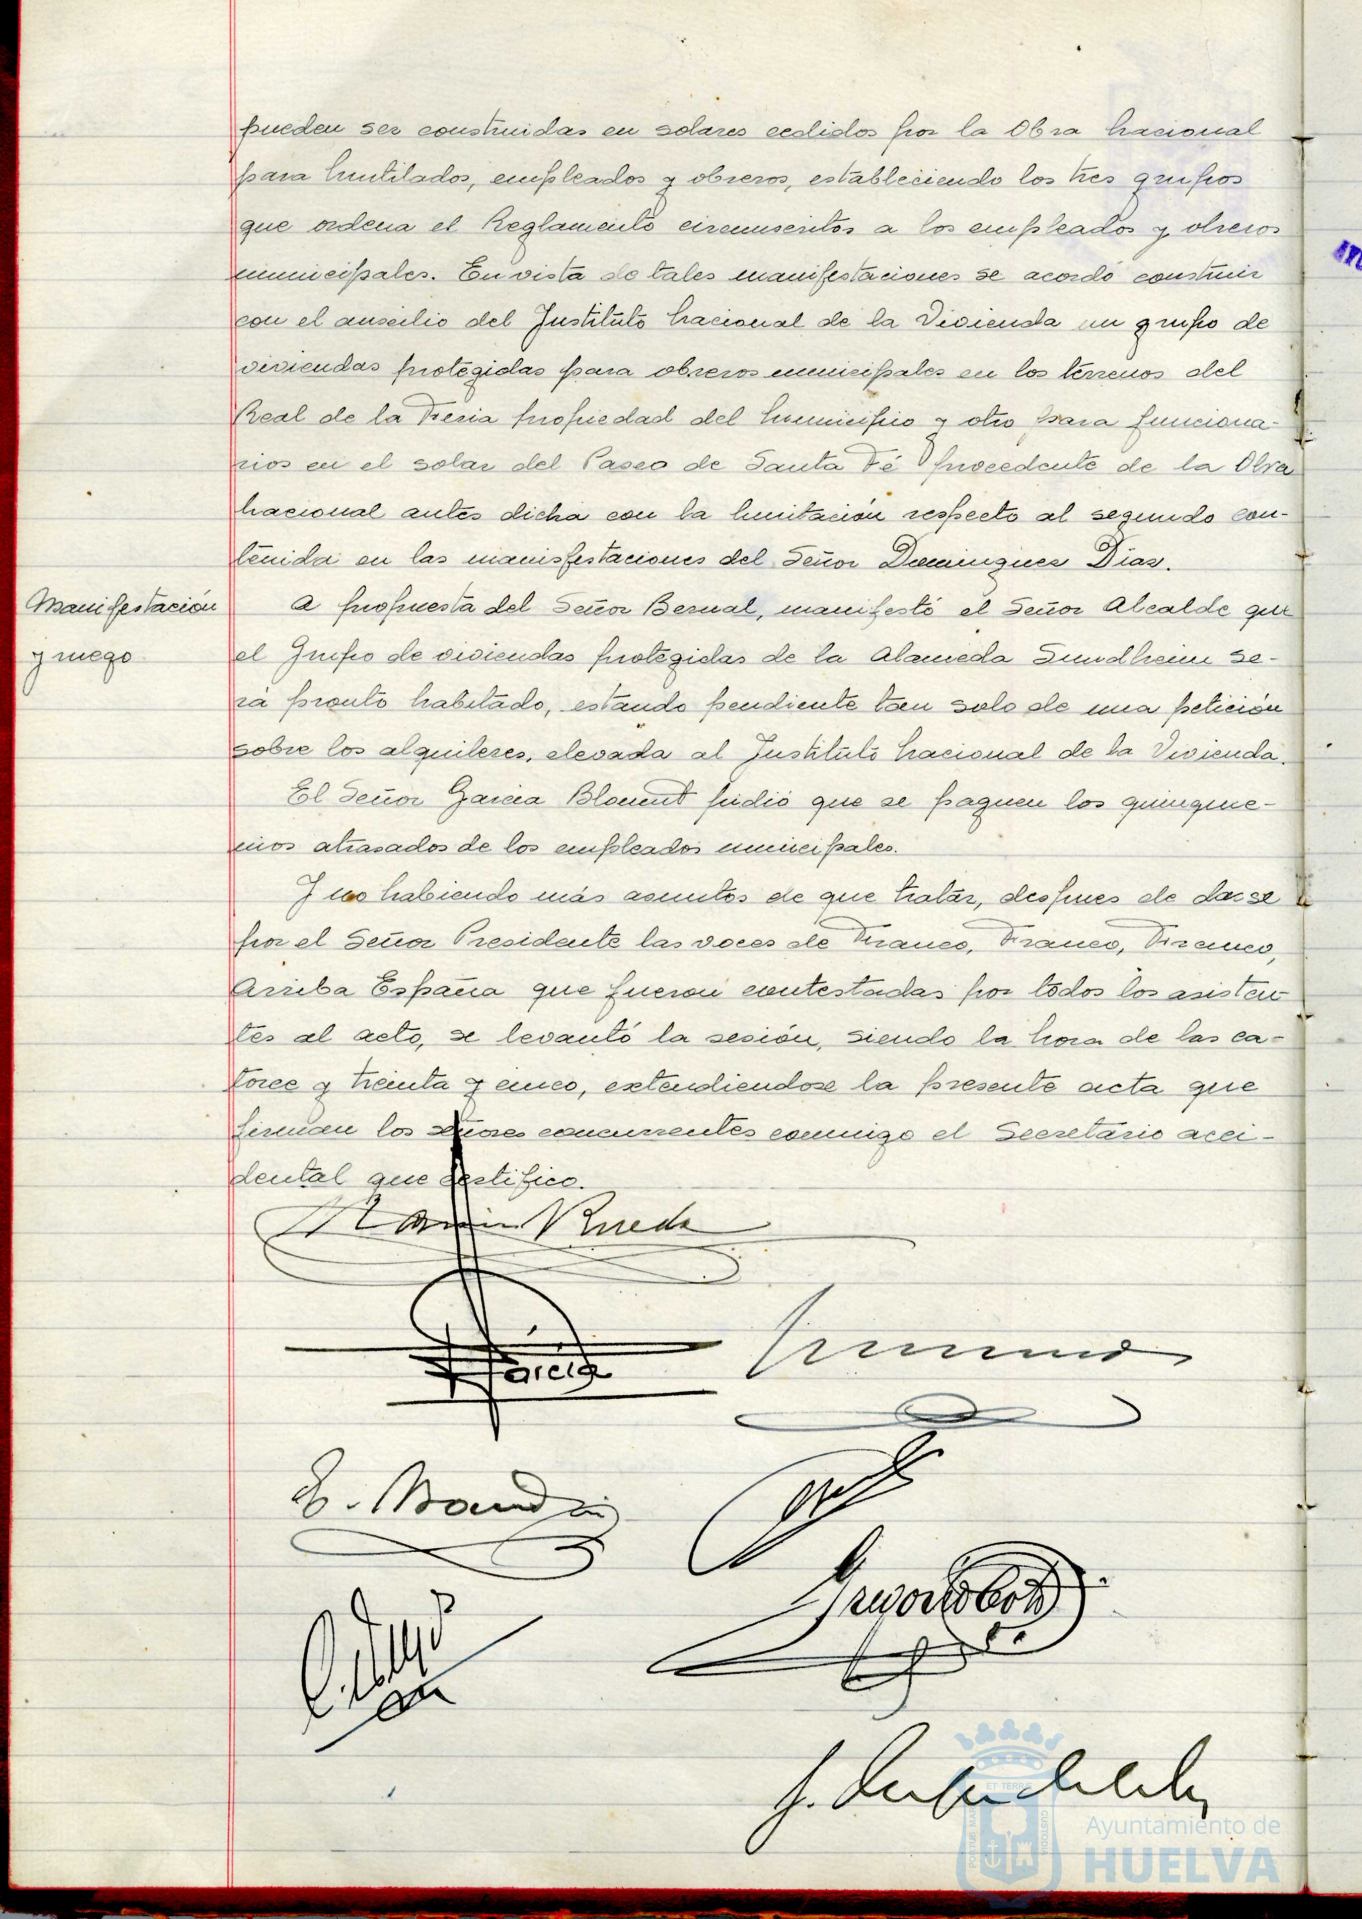 pueden ser construidas en solares cedidos por la Obra Nacional
para Mutilados, empleados y obreros, estableciendo los tres grupos
que ordena el Reglamento circunscritos a los empleados y obreros
municipales. En vista de tales manifestaciones se acordó construir
con el auscilio del Instituto Nacional de la Vivienda un grupo de
viviendas protegidas para obreros municipales en los terrenos del
Real de la Feria propiedad del Municipio y otro para funciona-
rios en el solar del Paseo de Santa Fé procedente de la Obra
Nacional antes dicha con la limitación respecto al segundo con-
tenida en las manisfestaciones del Señor Dominguez Díaz.
Manifestación
y ruego
A propuesta del Señor Bernal, manifestó el Señor Alcalde que
el Grupo de viviendas protegidas de la Alameda Sundheim se-
rá pronto habitado, estando pendiente tan solo de una petición
sobre los alquileres, elevada al Instituto Nacional de la Vivienda.
El Señor Garcia pidió que se paguen los quinque-
nios atrasados de los empleados municipales.
Y no habiendo más asuntos de que tratar, despues de darse
por el Señor Presidente las voces de Franco, Franco, Franco,
Arriba España que fueron contestadas por todos los asisten-
tes al acto, se levantó la sesión, siendo la hora de las ca-
torce y treinta y cinco, extendiendose la presente acta que
firman los señores concurrentes conmigo el Secretario acci-
dental que certifico.
Rueda
García
Gregorio
ET TERRE
PORTUS MARIS
CUSTODIA
Ayuntamiento de
HUELVA